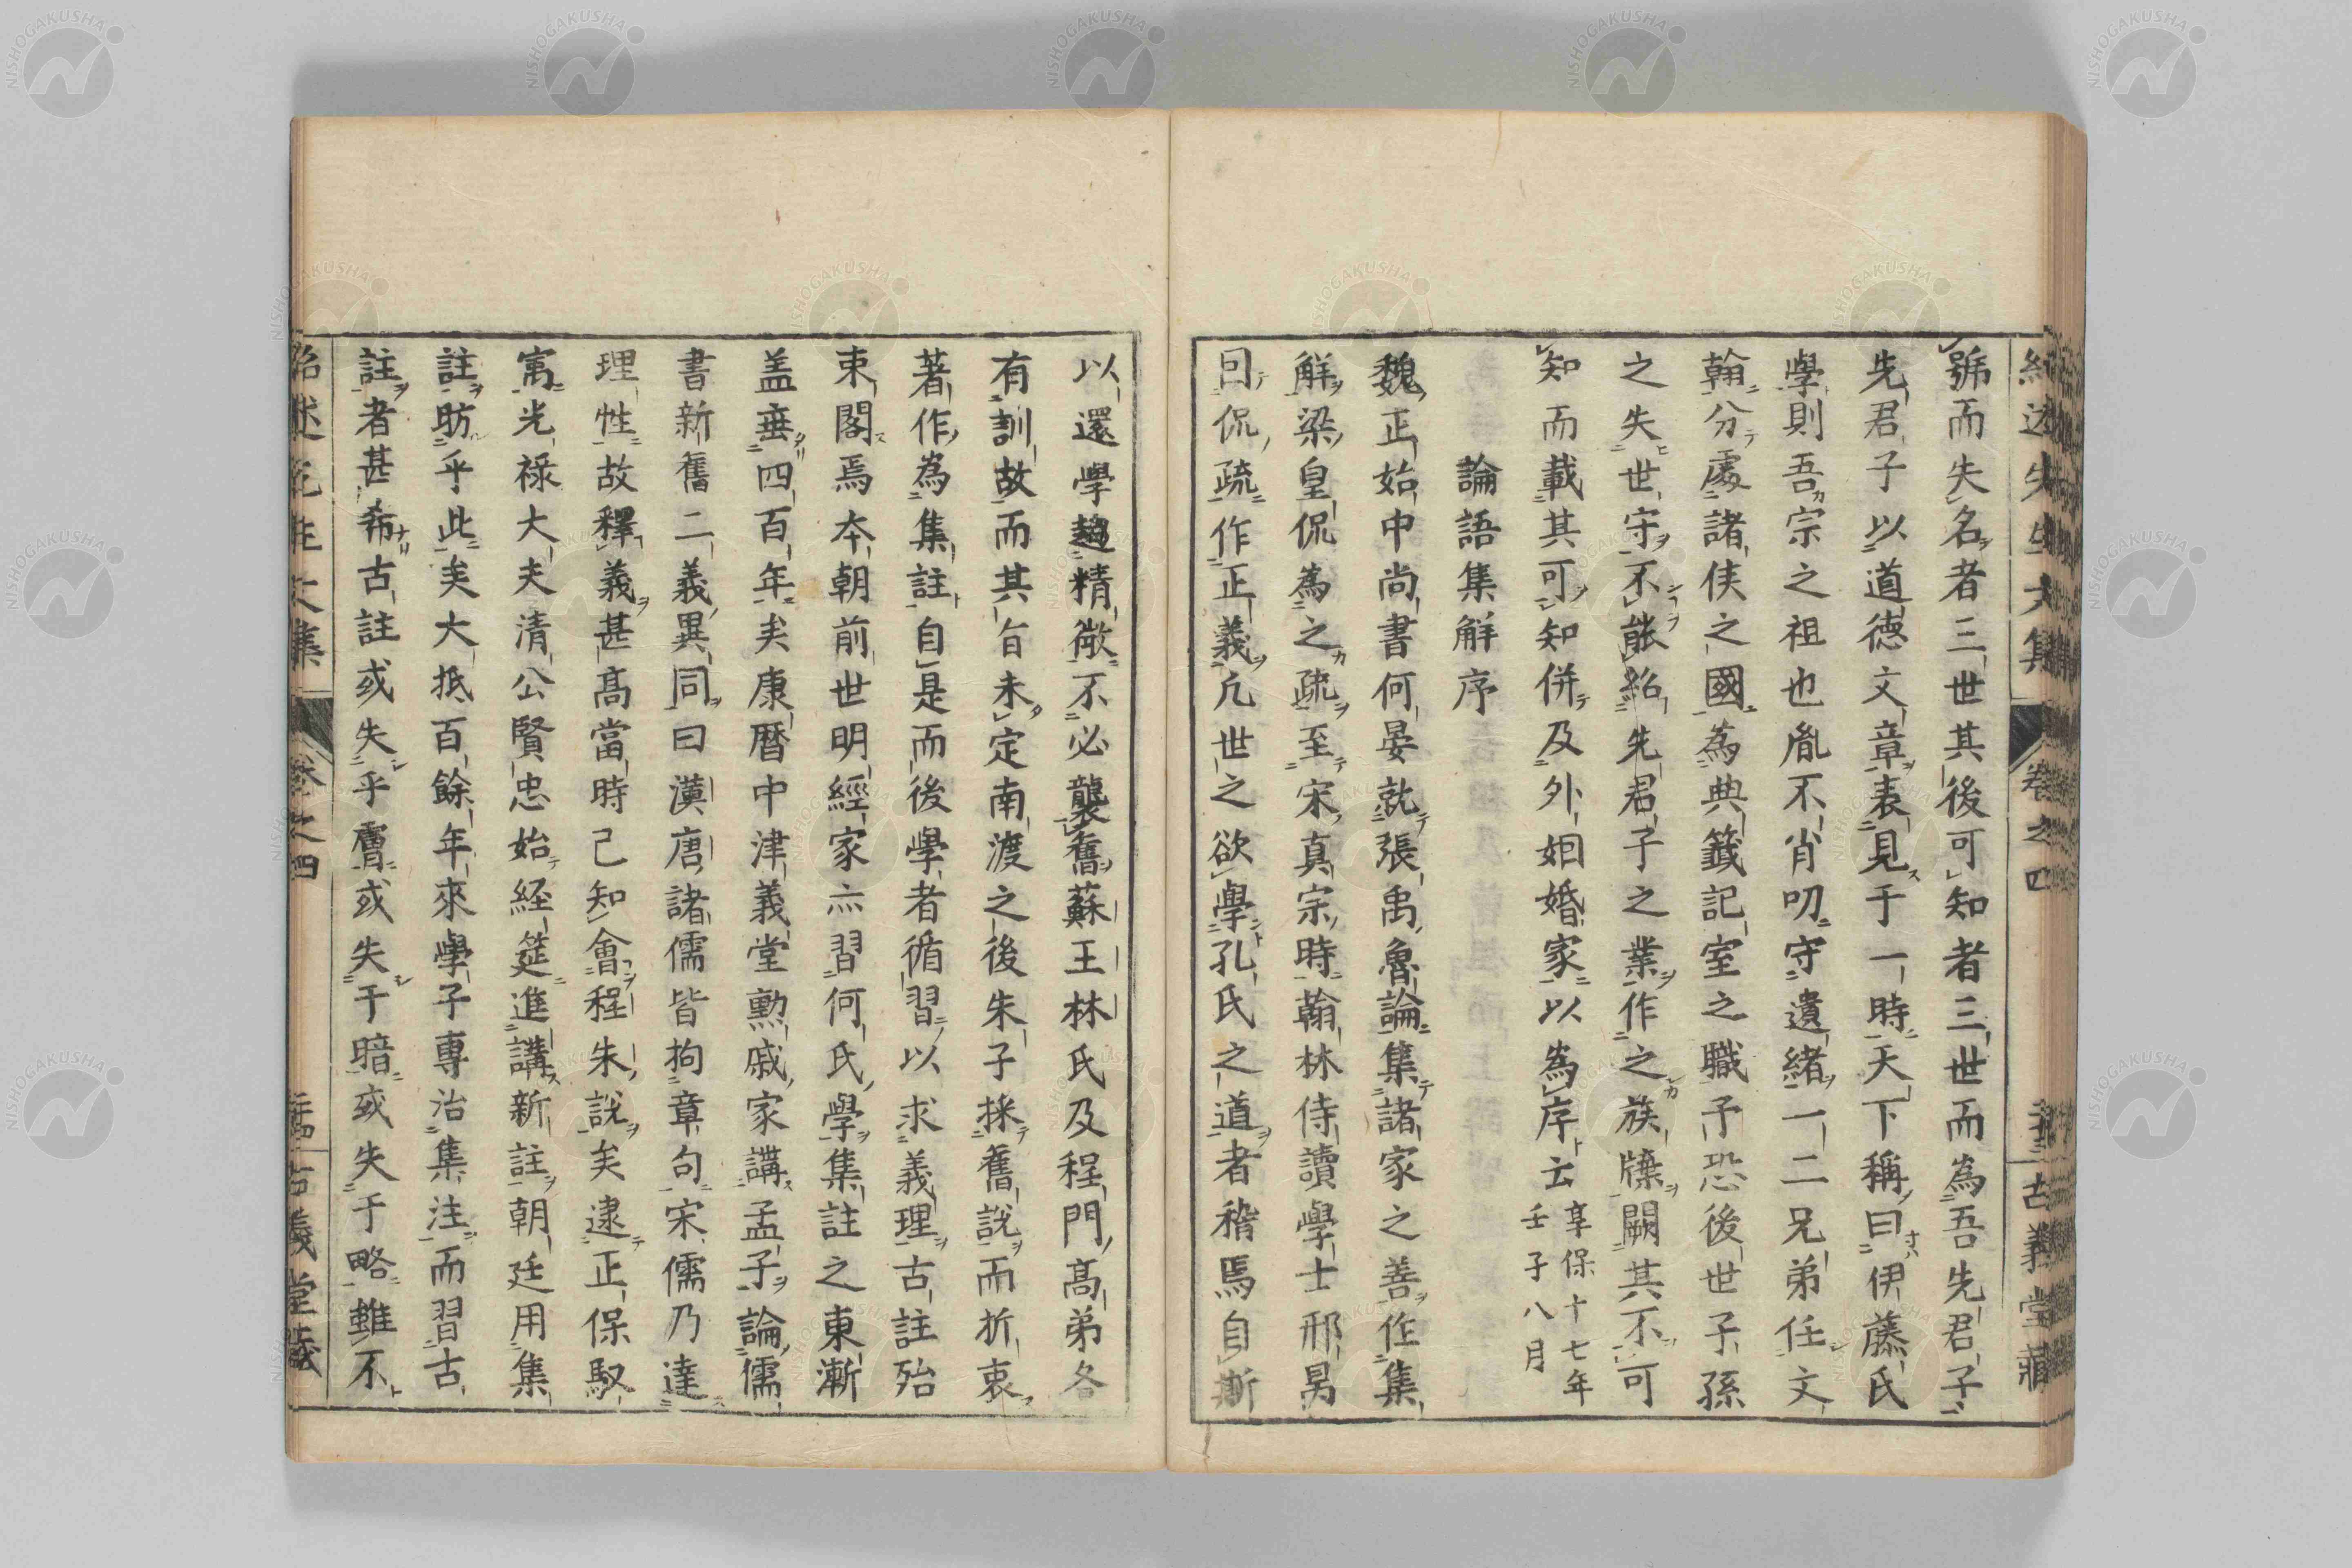 紹述先生文集 卷之四 古義堂藏
號而失名者三世其後可知者三世而為吾先君子
先君子以道德文章表見于一時天下稱曰伊藤氏
學則吾宗之祖也胤不肖叨守遺緒一二兄弟任文
翰分處諸侯之國為典籤記室之職予恐後世子孫
之失世守不能紹先君子之業作之族牒闕其不可
知而載其可知併及外姻婚家以為序云享保十七年
壬子八月
論語集解序
魏正始中尚書何晏就張禹魯論集諸家之善作集
解梁皇侃為之疏至宋真宗時翰林侍讀學士邢昺
因侃疏作正義凡世之欲學孔氏之道者稽焉自斯
以還學趨精微不必襲舊蘇王林氏及程門高弟各
有訓故而其旨未定南渡之後朱子採舊說而折衷
著作為集註自是而後學者循習以求義理古註殆
束閣焉本朝前世明經家亦習何氏學集註之東漸
盖垂四百年矣康曆中津義堂勳戚家講孟子論儒
書新舊二義異同曰漢唐諸儒皆拘章句宋儒乃達
理性故釋義甚高當時已知會程朱說矣逮正保馭
寓光祿大夫清公賢忠始經筵進講新註朝廷用集
註昉乎此矣大抵百餘年來學子專治集注而習古
註者甚希古註或失乎膚或失于暗或失于略雖不
紹述先生文集 卷之四 古義堂藏
NISHOGAKUSHA